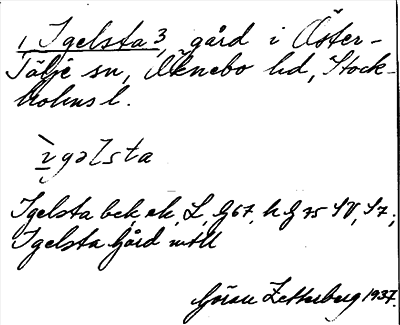 1 Igelsta 3, gård i Öster-
Tälje sn, Öknebo hd, Stock-
holms l.
i̬gəlsta
Igelsta bek, ek, L, G67, h G75 SV, S7;
Igelsta Gård mtll
Göran Zetterberg 1937.